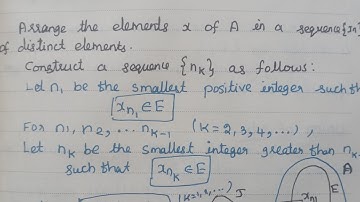 Arrange the elements x of A in a sequence {xn}
of distinct elements.
Construct a sequence {nk} as follows:
Let n1 be the smallest positive integer such th
xn1 ∈ E
For n1, n2, ... nk-1 (k = 2, 3, 4, ...),
Let nk be the smallest integer greater than nk-
such that xnk ∈ E
A
xn1
J